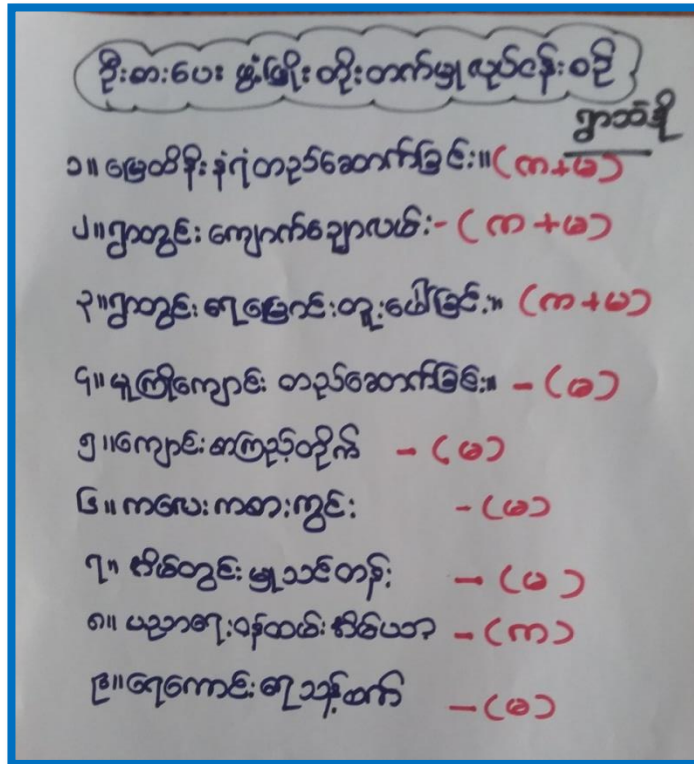 ဦးစားပေး ဖွံ့ဖြိုးတိုးတက်မှု လုပ်ငန်းစဉ်
ရွာသစ်
၁။ မြေထိန်းနံရံတည်ဆောက်ခြင်း။ (ကာ+မ)
၂။ ရွာတွင်း ကျောက်ချောလမ်း - (ကာ+မ)
၃။ ရွာတွင်း ရေမြောင်းတူးဖေါ်ခြင်း။ (ကာ+မ)
၄။ မူကြိုကျောင်း တည်ဆောက်ခြင်း။ - (မ)
၅။ ကျောင်းစာကြည့်တိုက် - (မ)
၆။ ကလေးကစားကွင်း - (မ)
၇။ အိမ်တွင်းမှုသင်တန်း - (မ)
၈။ ပညာရေးဝန်ထမ်းအိမ်ယာ - (ကာ)
၉။ ရေကောင်းရေသန့်စက် - (မ)